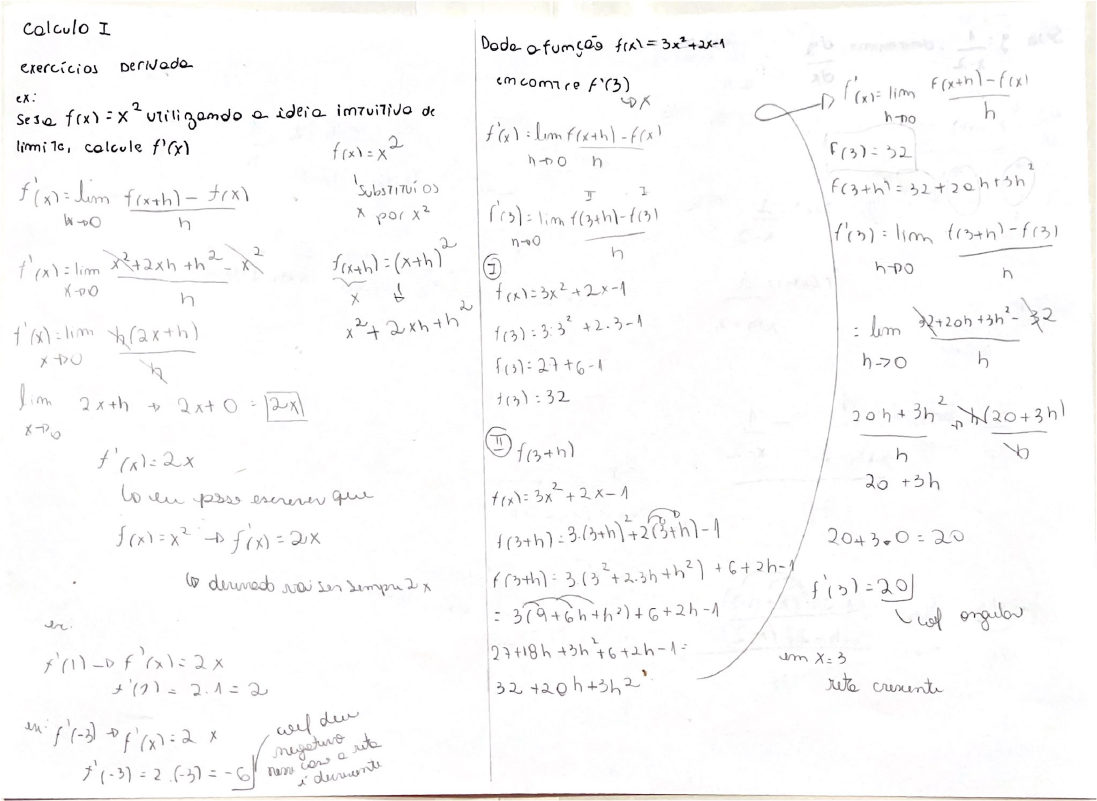 Calculo I
exercícios Derivada
ex:
Seja f(x) = x² utilizando a ideia intuitiva de
limite, calcule f'(x)
f(x) = x²
Substituí os
x por x²
f'(x) = lim f(x+h) - f(x)
h→0 h
f'(x) = lim x² + 2xh + h² - x²
x→0 h
f(x+h) = (x+h)²
x
x² + 2xh + h²
f'(x) = lim h(2x+h)
x→0 h
lim 2x+h → 2x+0 = 2x
x→0
f'(x) = 2x
↳ eu posso escrever que
f(x) = x² → f'(x) = 2x
↳ derivada vai ser sempre 2x
ex:
f'(1) → f'(x) = 2x
f'(1) = 2.1 = 2
ex: f'(-3) → f'(x) = 2x
f'(-3) = 2.(-3) = -6
coef deu
negativo
nesse caso a reta
é decrescente
Dada a função f(x) = 3x² + 2x - 1
encontre f'(3)
↳ x
f'(x) = lim f(x+h) - f(x)
h→0 h
II I
f'(3) = lim f(3+h) - f(3)
h→0 h
I
f(x) = 3x² + 2x - 1
f(3) = 3.3² + 2.3 - 1
f(3) = 27 + 6 - 1
f(3) = 32
II f(3+h)
f(x) = 3x² + 2x - 1
f(3+h) = 3.(3+h)² + 2(3+h) - 1
f(3+h) = 3(3² + 2.3h + h²) + 6 + 2h - 1
= 3(9 + 6h + h²) + 6 + 2h - 1
27 + 18h + 3h² + 6 + 2h - 1 =
32 + 20h + 3h²
→ f'(x) = lim f(x+h) - f(x)
h→0 h
f(3) = 32
f(3+h) = 32 + 20h + 3h²
f'(3) = lim f(3+h) - f(3)
h→0 h
= lim 32 + 20h + 3h² - 32
h→0 h
20h + 3h² → h(20 + 3h)
h h
20 + 3h
20 + 3.0 = 20
f'(3) = 20
↳ coef angular
em x = 3
reta crescente